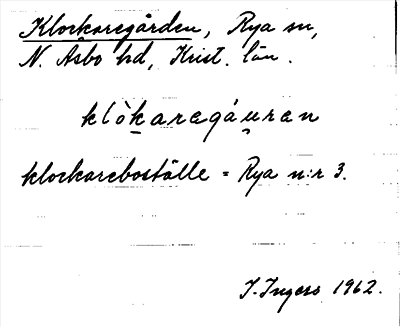 Klockaregården, Rya sn,
N. Åsbo hd, Krist. län.
klòkaregáuren
klockareboställe = Rya n:r 3.
I. Ingers 1962.